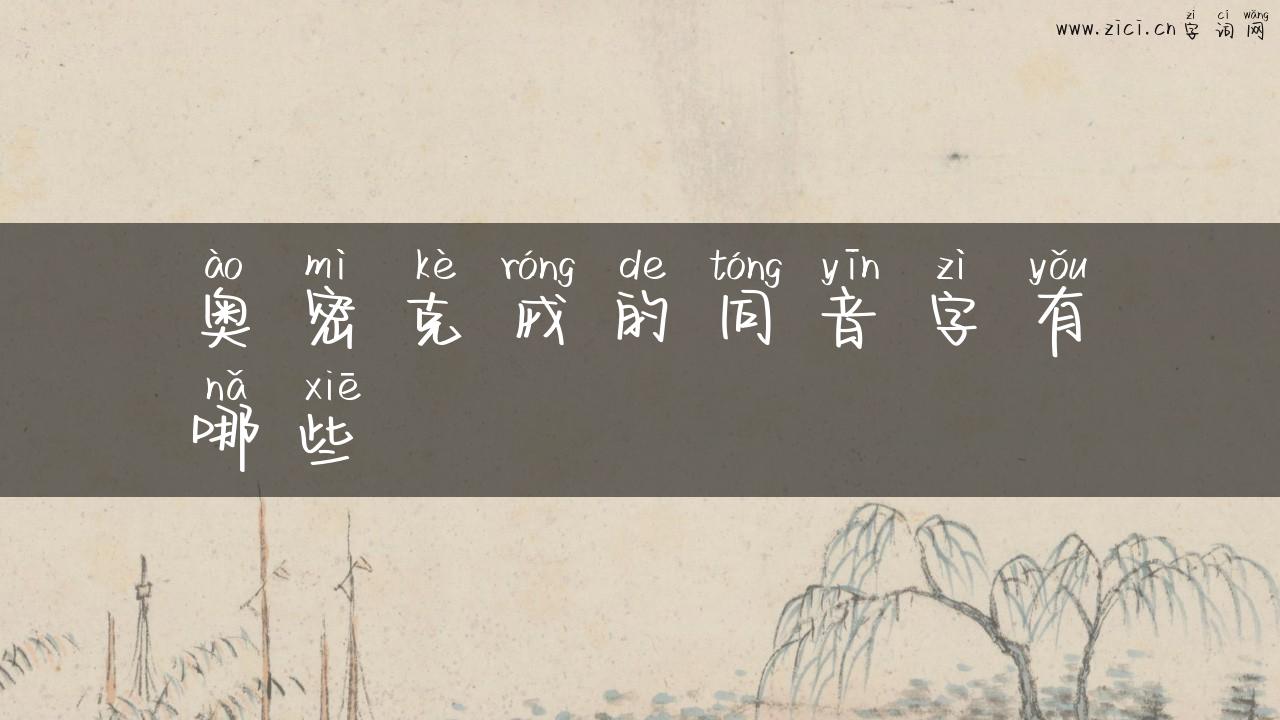 zì cí wǎng
www.zici.cn 字 词 网
ào mì kè róng de tóng yīn zì yǒu
奥 密 克 戎 的 同 音 字 有
nǎ xiē
哪 些